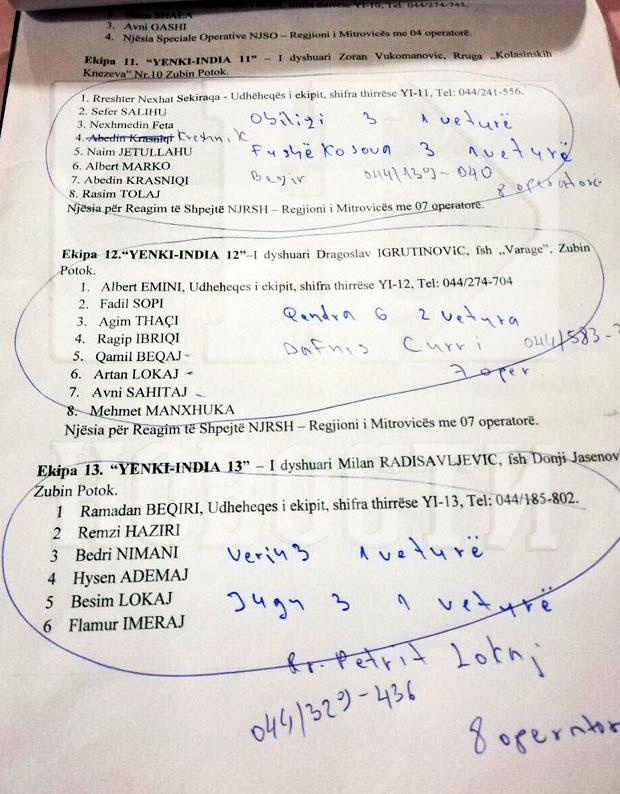 SHALA
3. Avni GASHI
4. Njësia Speciale Operative NJSO – Regjioni i Mitrovicës me 04 operatorë.
Ekipa 11. “YENKI-INDIA 11” – I dyshuari Zoran Vukomanovic, Rruga „Kolasinskih
Knezeva” Nr.10 Zubin Potok.
1. Rreshter Nexhat Sekiraqa - Udhëheqës i ekipit, shifra thirrëse YI-11, Tel: 044/241-556.
2. Sefer SALIHU
3. Nexhmedin Feta
Obiliqi 3 1 veturë
4. Abedin Krasniqi Kreshnik
5. Naim JETULLAHU
Fushë Kosova 3 1 veturë
6. Albert MARKO
7. Abedin KRASNIQI
Beqir 044/139-040
8 operatorë
8. Rasim TOLAJ
Njësia për Reagim të Shpejtë NJRSH – Regjioni i Mitrovicës me 07 operatorë.
Ekipa 12.“YENKI-INDIA 12”–I dyshuari Dragoslav IGRUTINOVIC, fsh „Varage”, Zubin
Potok.
1. Albert EMINI, Udheheqes i ekipit, shifra thirrëse YI-12, Tel: 044/274-704
2. Fadil SOPI
3. Agim THAÇI
Qendra 6 2 vetura
4. Ragip IBRIQI
Dafnis Curri 044/583-
5. Qamil BEQAJ
6. Artan LOKAJ
7 oper
7. Avni SAHITAJ
8. Mehmet MANXHUKA
Njësia për Reagim të Shpejtë NJRSH – Regjioni i Mitrovicës me 07 operatorë.
Ekipa 13. “YENKI-INDIA 13” – I dyshuari Milan RADISAVLJEVIC, fsh Donji Jasenov
Zubin Potok.
1 Ramadan BEQIRI, Udheheqes i ekipit, shifra thirrëse YI-13, Tel: 044/185-802.
2 Remzi HAZIRI
3 Bedri NIMANI
Veriu 3 1 veturë
4 Hysen ADEMAJ
5 Besim LOKAJ
Jugu 3 1 veturë
6 Flamur IMERAJ
Rr. Petrit Lokaj
044/329-436
8 operator